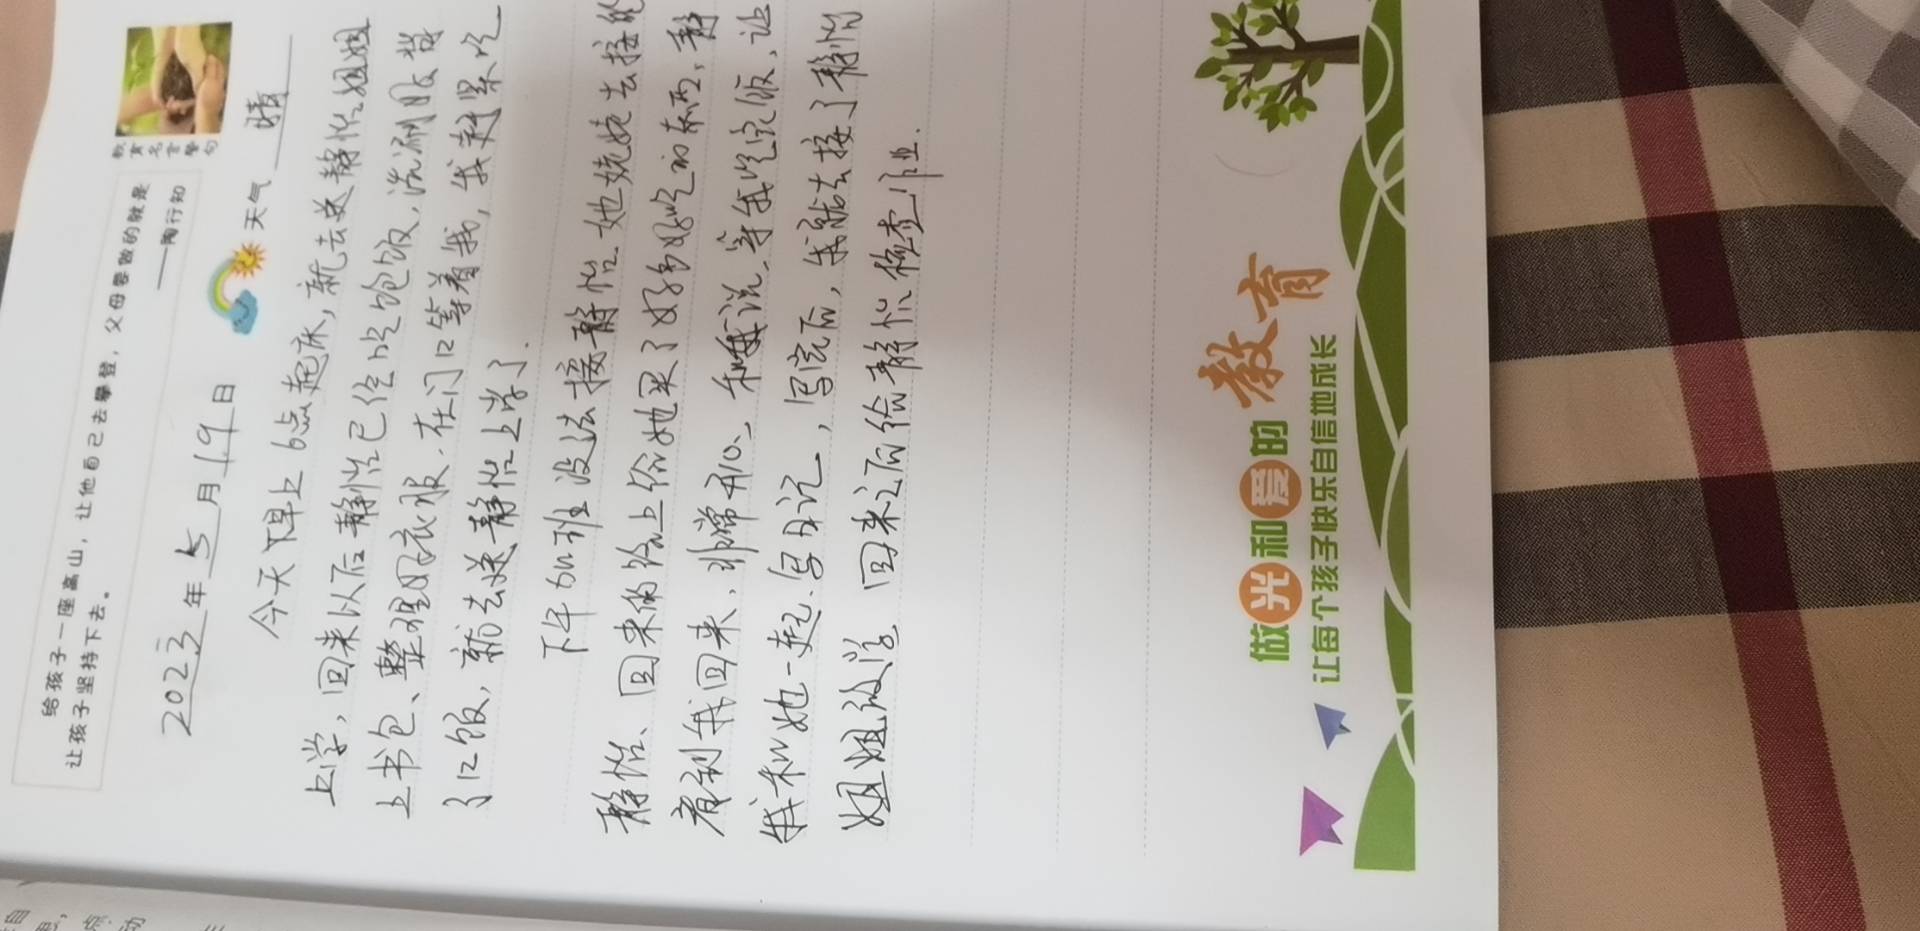 给孩子一座高山，让他自己去攀登，父母要做的就是
让孩子坚持下去。
——陶行知
教育名言警句
2023年5月19日 天气 晴
今天早上6点起床，就去送静怡姐姐
上学，回来以后静怡已经吃饱饭，洗漱
上书包、整理好衣服，在门口等着我，我赶紧吃
了口饭，就去送静怡上学了.
下午加班没法去接静怡.她姥姥去接的
静怡、回来的路上给她买了好多好吃的东西，静
看到我回来，非常开心、和我说、等我吃完饭，让
我和她一起、写日记，写完后，我就去接了静怡
姐姐放学 回来之后给静怡检查作业.
做光和爱的教育
让每个孩子快乐自信地成长